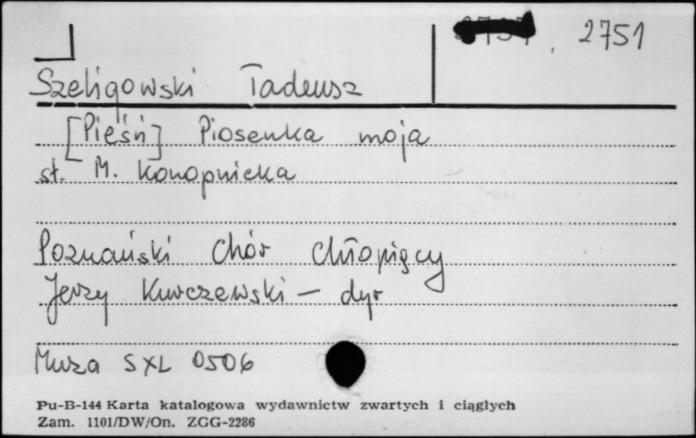 2751
Szeligowski Tadeusz
[Pieśń] Piosenka moja
sł. M. Konopnicka
Poznański Chór Chłopięcy
Jerzy Kurczewski — dyr
Muza SXL 0506
Pu-B-144 Karta katalogowa wydawnictw zwartych i ciągłych
Zam. 1101/DW/On. ZGG-2286